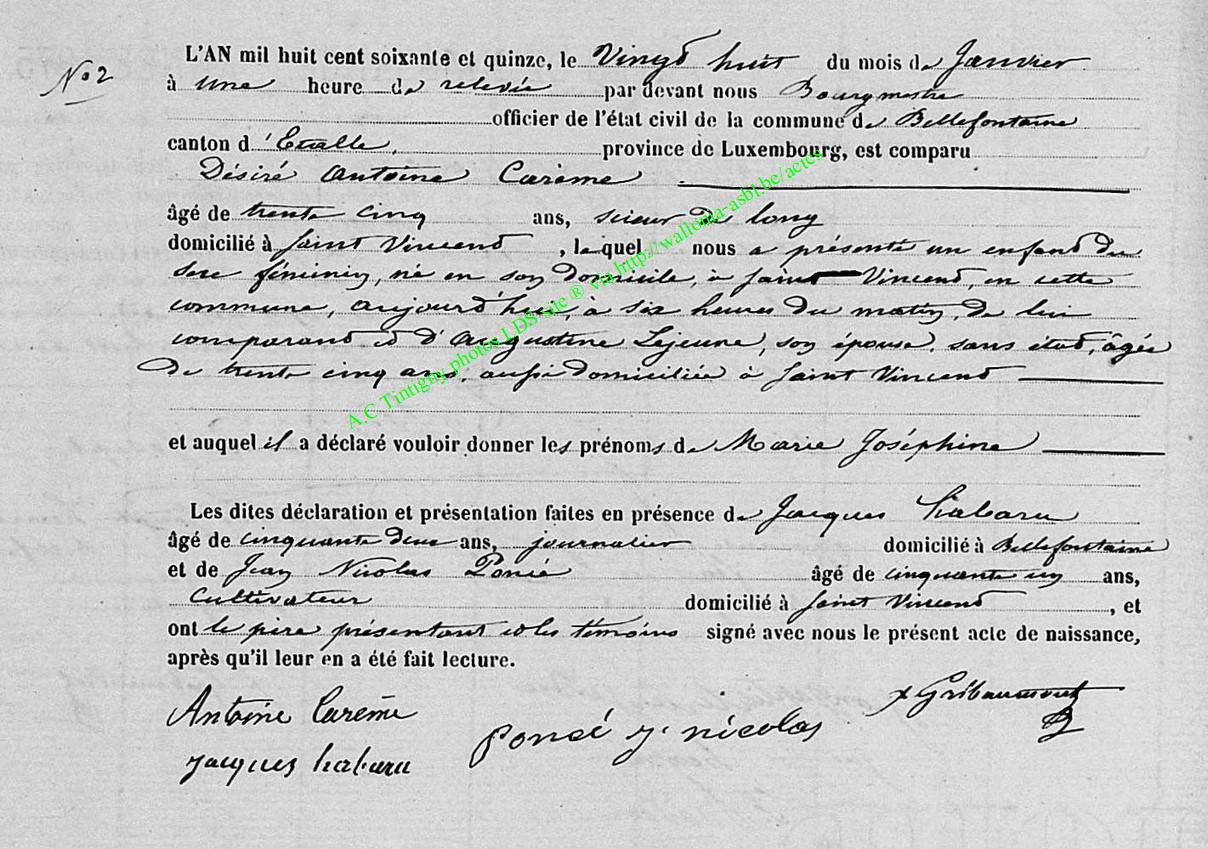 No 2
L'AN mil huit cent soixante et quinze, le Vingt huit du mois de Janvier
à une heure de relevée par devant nous Bourgmestre
officier de l'état civil de la commune de Bellefontaine
canton d'Etalle, province de Luxembourg, est comparu
Désiré Antoine Carême
âgé de trente cinq ans, scieur de long
domicilié à Saint Vincent, lequel nous a présenté un enfant du
sexe féminin, né en son domicile, à Saint Vincent, en cette
commune, aujourd'hui, à six heures du matin, de lui
comparant et d'Augustine Lejeune, son épouse, sans état, âgée
de trente cinq ans, aussi domiciliée à Saint Vincent
et auquel il a déclaré vouloir donner les prénoms de Marie Joséphine
Les dites déclaration et présentation faites en présence de Jacques Habaru
âgé de cinquante deux ans, journalier domicilié à Bellefontaine
et de Jean Nicolas Poncé âgé de cinquante un ans,
Cultivateur domicilié à Saint Vincent, et
ont le père présentant et les témoins signé avec nous le présent acte de naissance,
après qu'il leur en a été fait lecture.
Antoine Carême
poncé j. nicolas
jacques habaru
A.C Tintigny photos LDS site ® via http://wallonia-asbl.be/actes